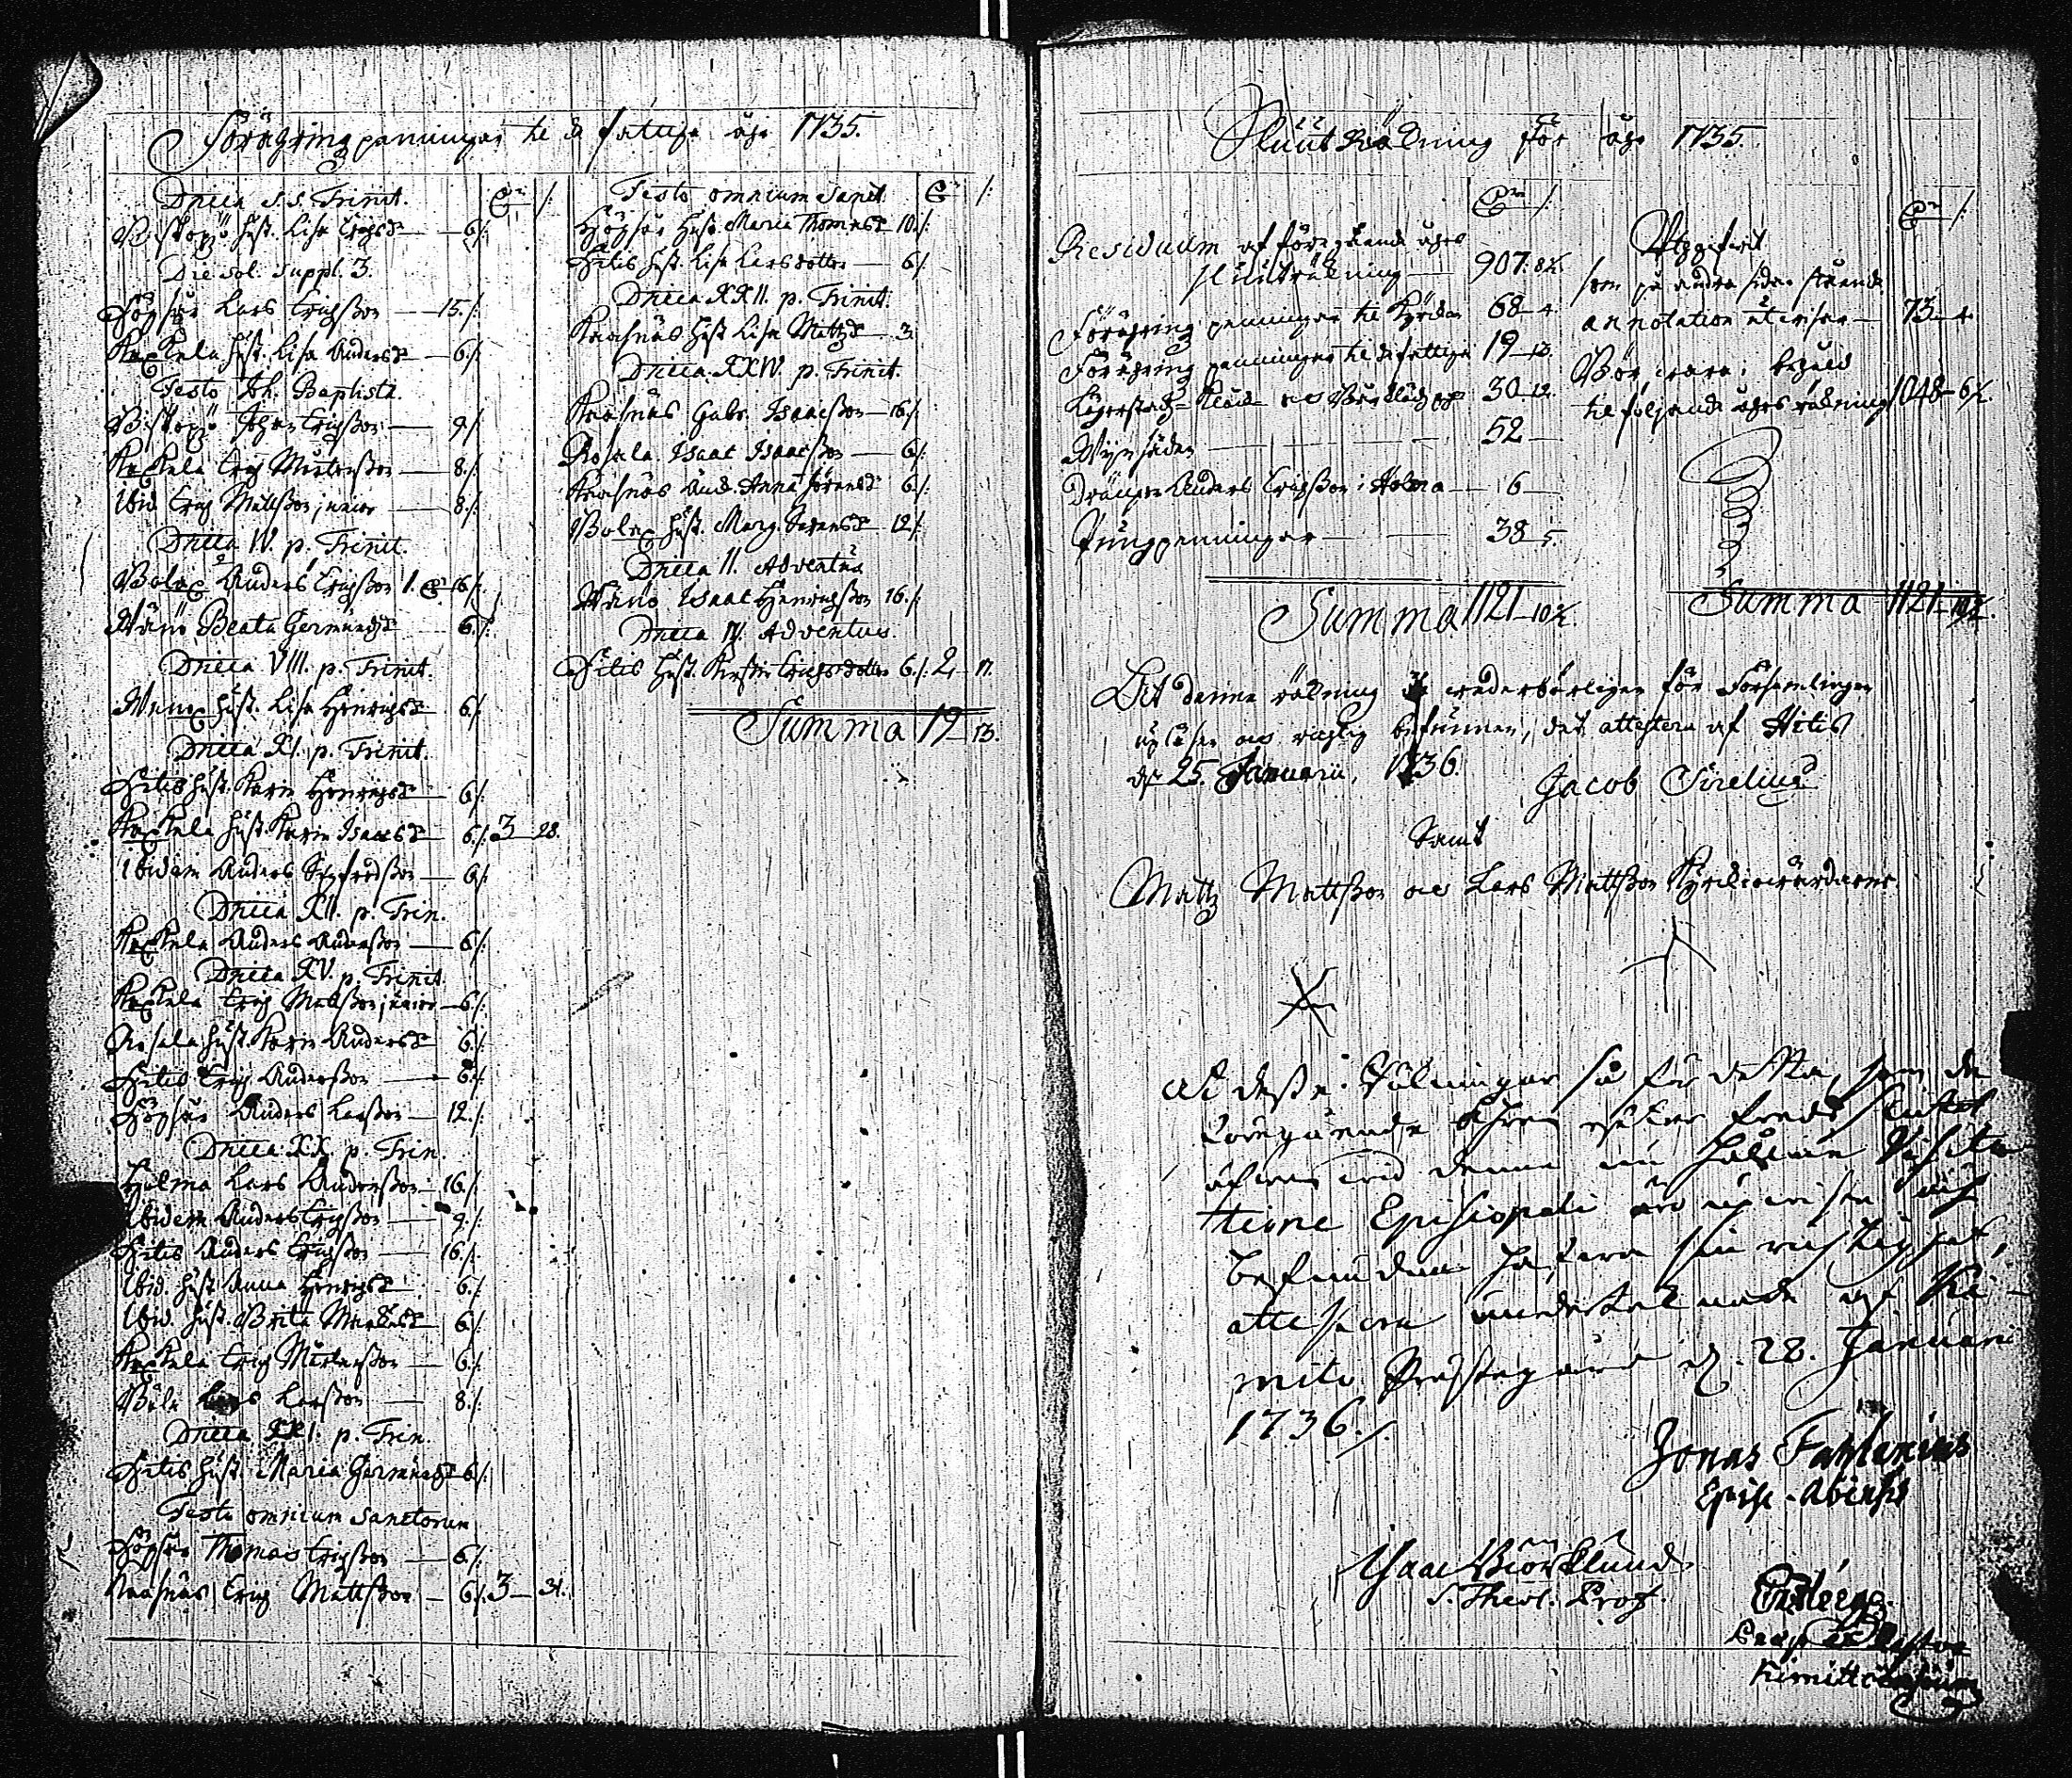 Föräring penningar til de fattige åhr 1735.
Dnica S.S. Trinit.
Biskopzö hust. Lisa Erichsdr 6/:
Die sol. suppl. 3.
Högsår Lars Erichsson 15./:
Kaxkela hust. Lisa Andersdr 6./:
Festo Joh. Baptistæ.
Biskopzö Johan Erichsson 9/:
Kaxkela Erich Mårtensson 8./:
Ibid. Erich Mattsson junior 8./:
Dnica IV. p. Trinit.
Bolax Anders Erichsson 1. 16./:
Wänö Beata Germundsdr 6./:
Dnica VIII. p. Trinit.
Wänö hust. Lisa Hinrichsdr 6./:
Dnica XI. p. Trinit.
Hitis hust. Karin Hinrichsdr 6/:
Kaxkela hust. Karin Isacsdr 6./: 3 28.
Ibidem Anders Sigfredsson 6/:
Dnica XII. p. Trin.
Kaxkela Anders Andersson 6/:
Dnica XV. p. Trinit.
Kaxkela Erich Mattsson junior 6./:
Rosala hust. Karin Andersdr 6./:
Hitis Erich Andersson 6./:
Högsår Anders Larsson 12./:
Dnica XX. p. Trin.
Holma Lars Andersson 16./:
Ibidem Anders Erichsson 9./:
Hitis Anders Erichsson 16./:
Ibid. hust. Anna Hinrichsdr 6./:
Ibid. hust. Brita 6/:
Kaxkela Erich Mårtensson 6./:
Böle Lars Larsson 8./:
Dnica XXI. p. Trin.
Hitis hust. Maria Germundsdr 6/:
Festo omnium Sanctorum
Högsår Thomas Erichsson 6./:
Kasnäs Erich Mattsson 6./: 3 31.
Festo omnium Sanct.
Högsår hust. Maria Thomasdr 10./:
Hitis hust. Lisa Larsdotter 6/:
Dnica XXII. p. Trinit.
Kasnäs hust. Lisa Mattsdr 3
Dnica XXIV. p. Trinit.
Kasnäs Gabr. Isacsson 16./:
Rosala Isaac Isaacsson 6/:
Kasnäs Anna Göransdr 6./:
Bolax hust. Marg. 12/:
Dnica II. Adventus
Wänö Isaac Hinrichsson 16./:
Dnica IV. Adventus.
Hitis hust. Kirstin Erichsdotter 6./: 2 17.
Summa 19 13.
Sluut Räkning för åhr 1735.
Residuum af föregående åhrs
sluuträkning 907. 8½.
Föräring penningar til Kyrkan 68 4.
Föräring penningar til de fattige 19 13.
Lägerstadz- Klåck- och 30 12.
Wijnsäden 52
Drängen Anders Erichsson i Holma 6
Pungpenningar 38 5.
Summa 1121 10½.
Utgifwit
som på andra sidan stående
annotation utwisar 73 4.
Bör wara i behåld
til följande åhrs räkning 1048 6½.
Summa 1121 10½.
Att denna räkning är wederbörligen för Församlingen
upläsen och richtig befunnen, det attestera af Hitis
den 25. Januarii, 1736.
Jacob Sirelius
Samt
Matz Mattsson och Lars Mattsson Kyrckiowärdarne
At desse Räkningar så för detta, som de
föregående åhren
wid denna nu håldne Visita
tione Episcopali äro
befundne hafwa sin richtighet,
attestera undertecknade af Ki-
mito Prestegård d. 28. Januarii
1736./.
Jonas Fahlenius
Episc. Aboens
Isaac Björklund
S. Theol. Prof.